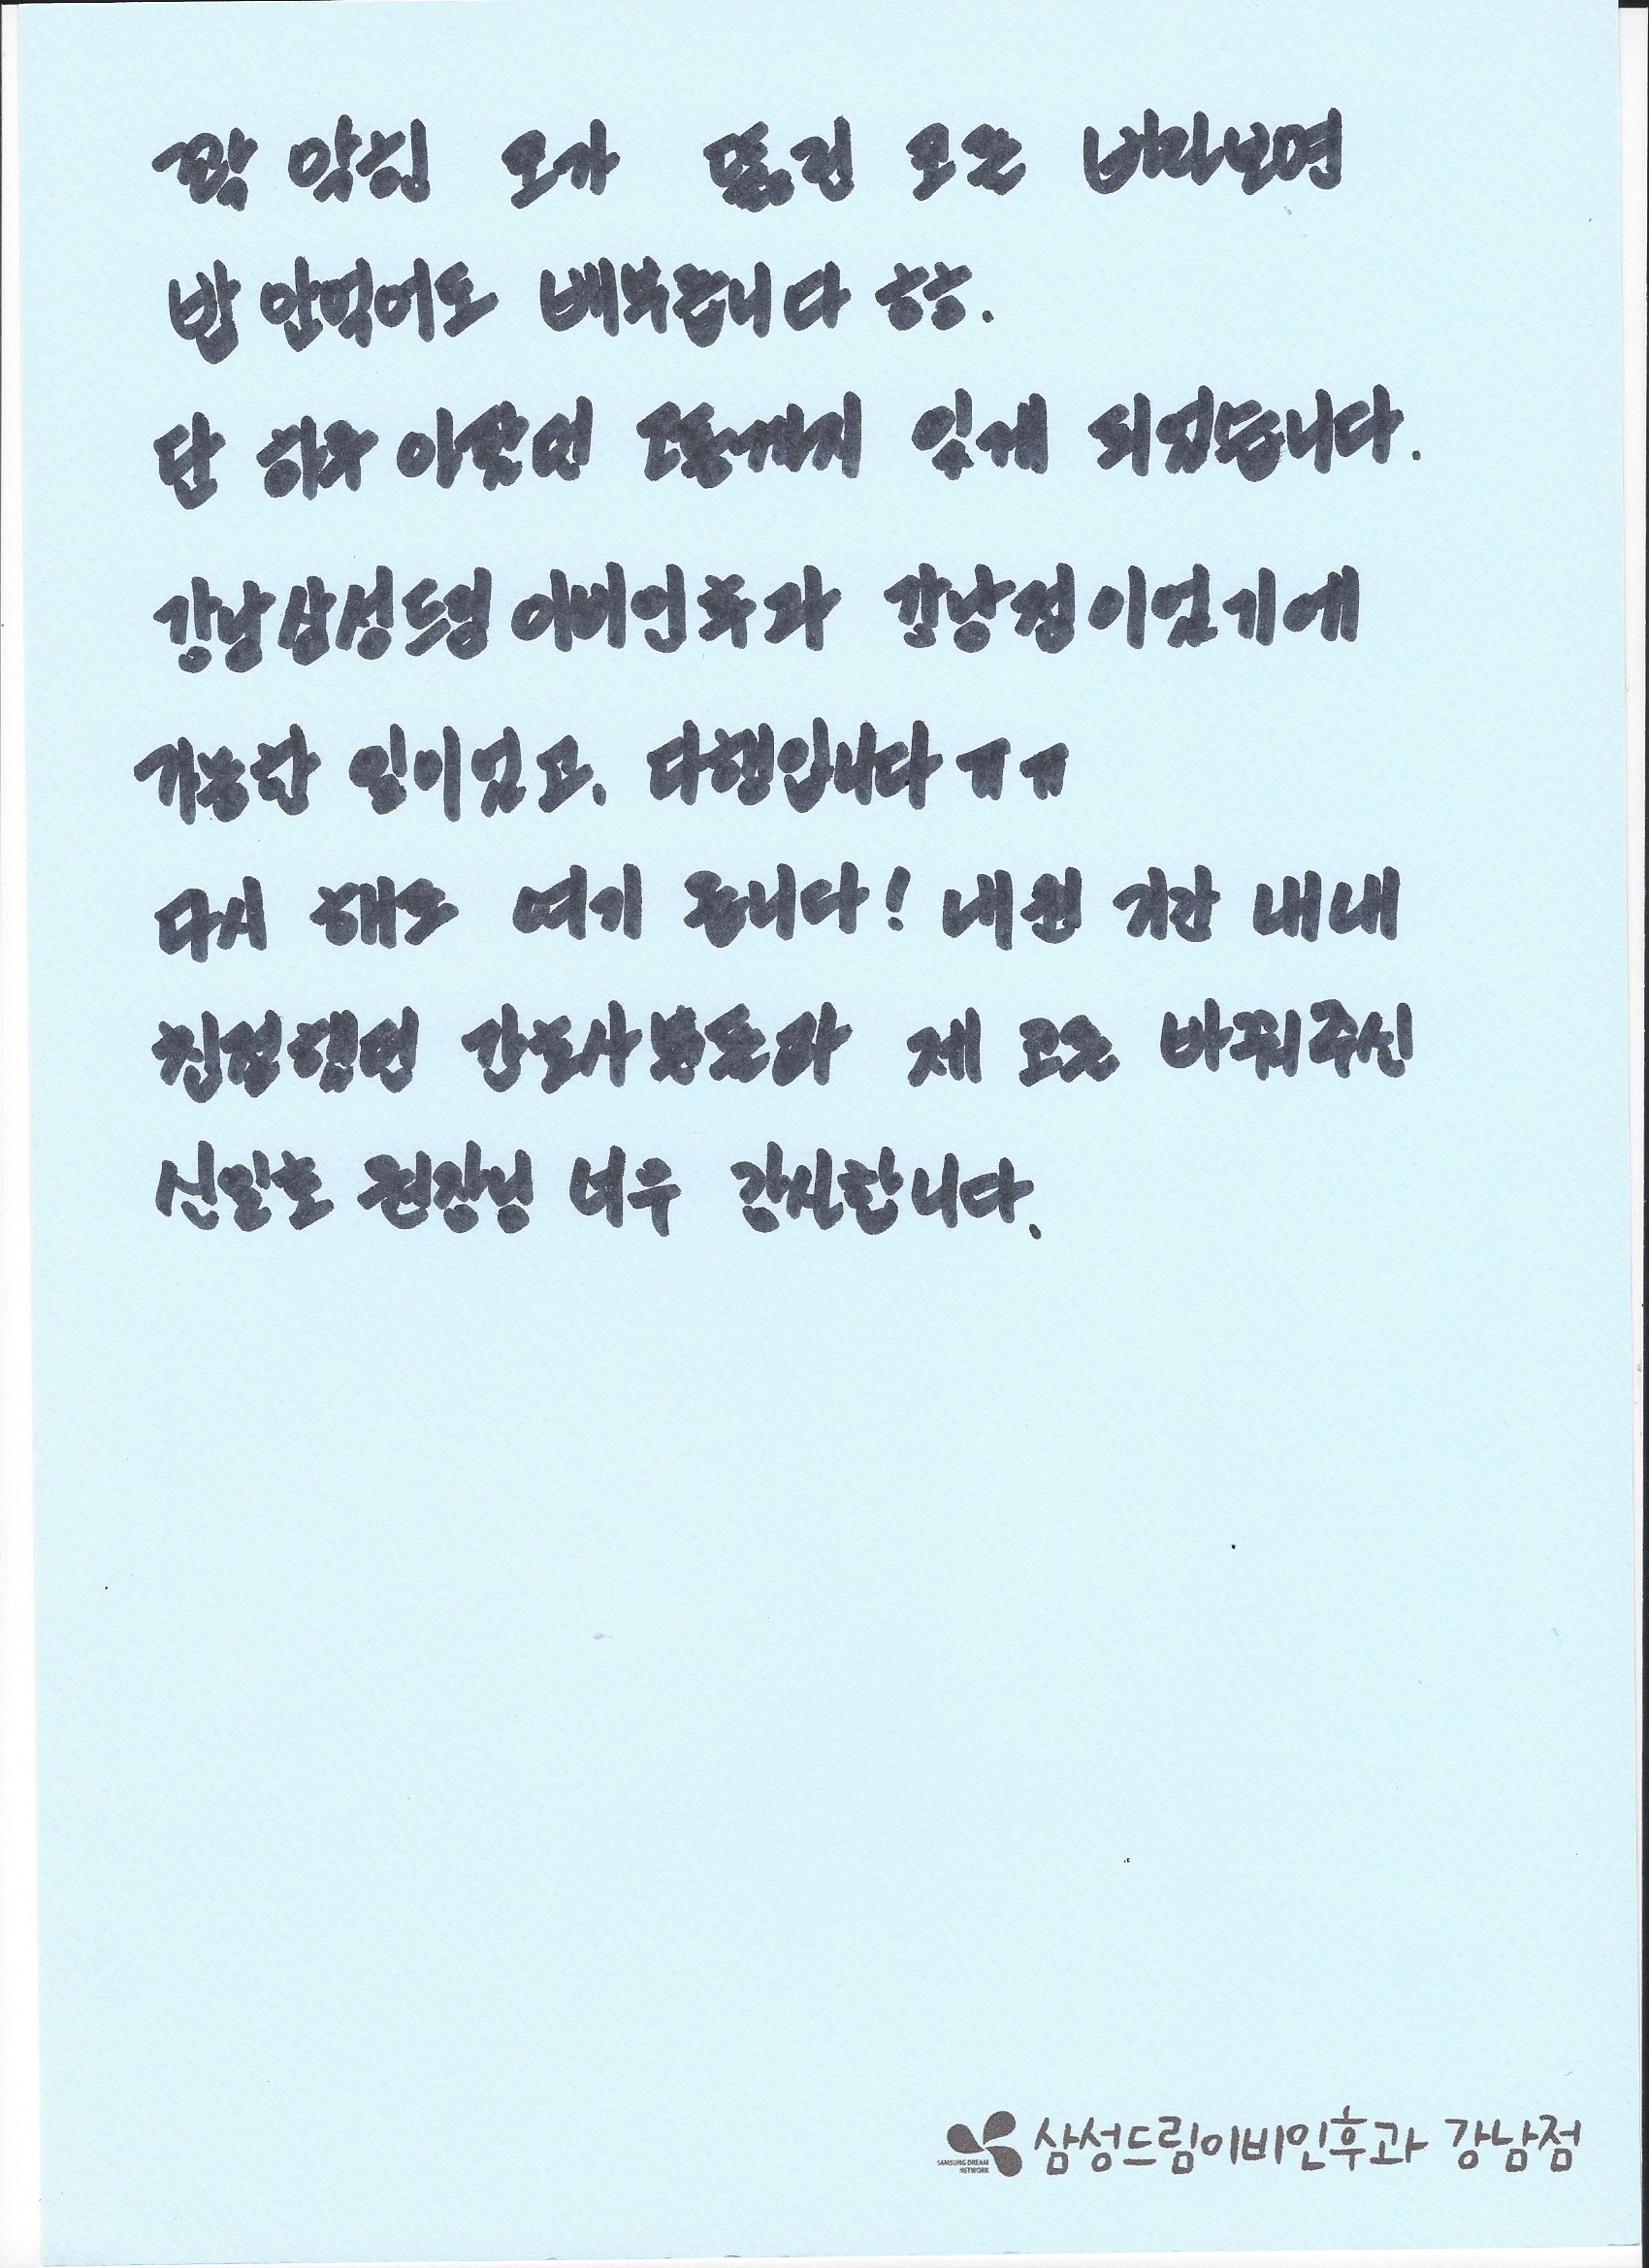 꽉 막힌 모가 뚫린 코를 바라보면
밥 안먹어도 배부릅니다 ㅎㅎ.
단 하루 아팠던 고통까지 잊게 되었습니다.
강남삼성드림이비인후과 강남점이었기에
가능한 일이었고. 다행입니다 ㅠㅠ
다시 해도 여기 옵니다! 내원 기간 내내
친절했던 간호사분들과 제 코를 바꿔주신
신일호 원장님 너무 감사합니다.
SAMSUNG DREAM NETWORK 삼성드림이비인후과 강남점